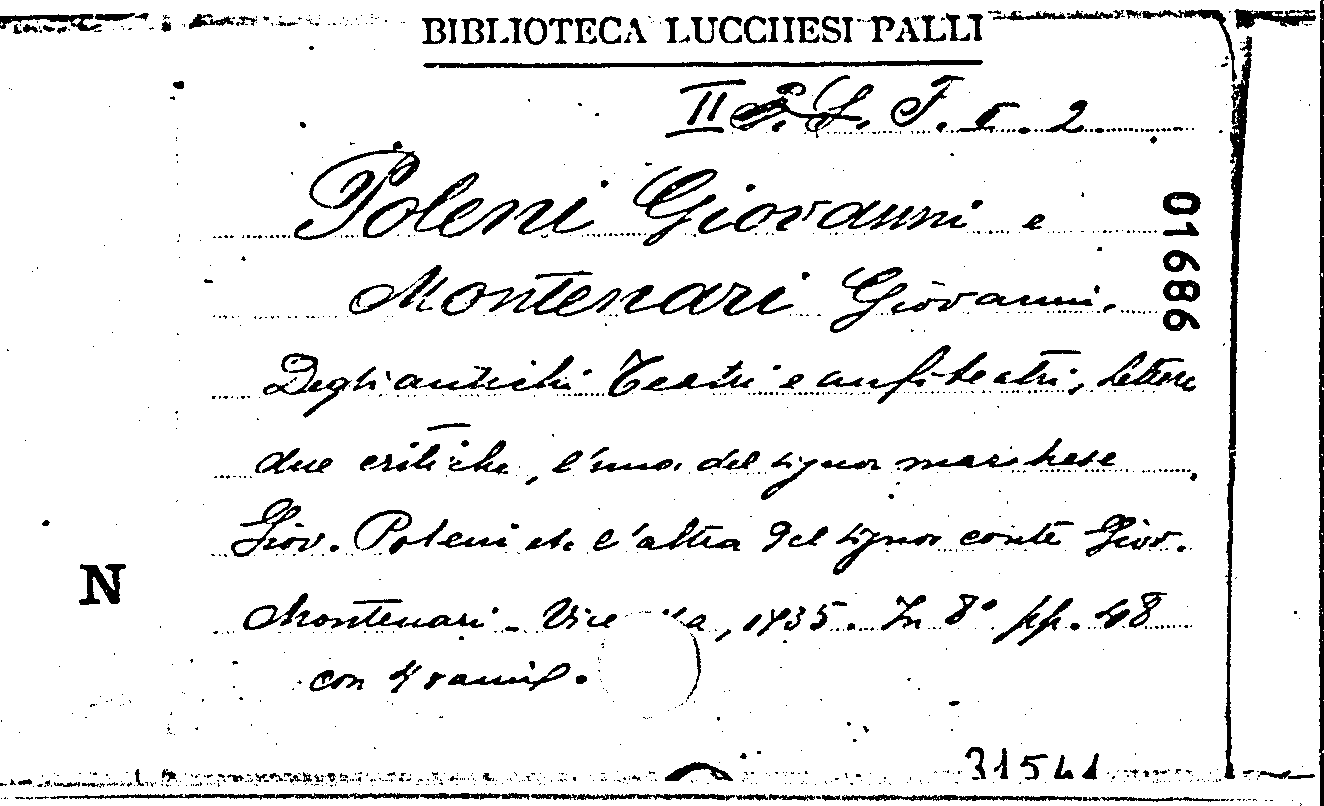 BIBLIOTECA LUCCHESI PALLI
II S. L. F. I. 2.
Poleni Giovanni e
Montenari Giovanni.
01686
Degli antichi Teatri e anfiteatri, lettere
due critiche, l'una del signor marchese
Giov. Poleni etc l'altra del signor conte Giov.
N
Montenari - Vice a, 1735. In 8° pp. 48
con 4 rami.
31541